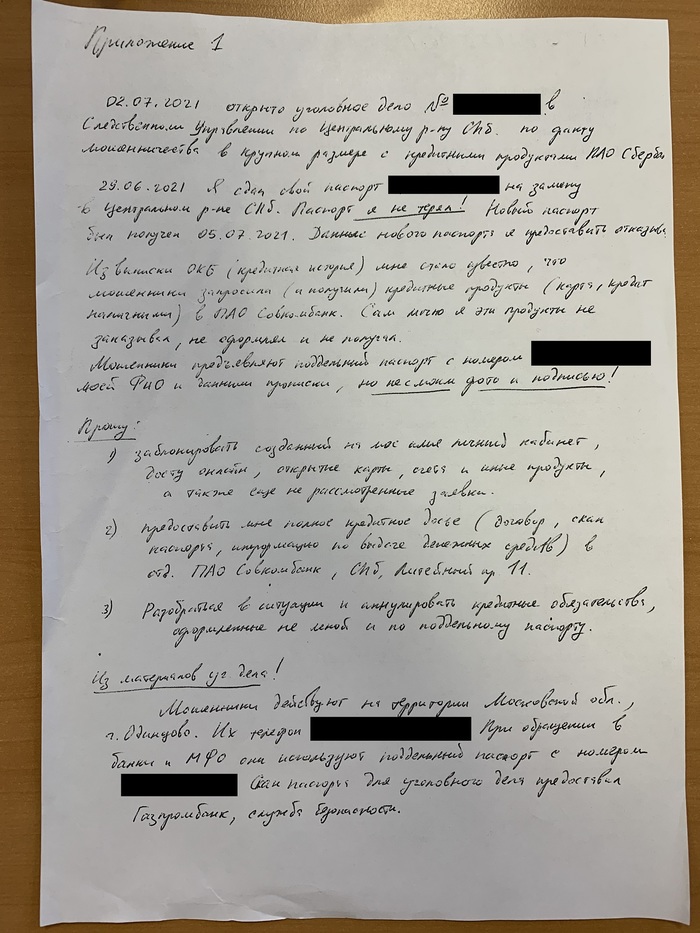 Приложение 1
02.07.2021 открыто уголовное дело № в
Следственном Управлении по Центральному р-ну СПб. по факту
мошенничества в крупном размере с кредитными продуктами ПАО Сберба
29.06.2021 Я сдал свой паспорт на замену
в Центральном р-не СПб. Паспорт я не терял! Новый паспорт
был получен 05.07.2021. Данные нового паспорта я предоставить отказыв
Из выписки ОКБ (кредитная история) мне стало известно, что
мошенники запросили (и получили) кредитные продукты (карта, кредит
наличными) в ПАО Совкомбанк. Сам лично я эти продукты не
заказывал, не оформлял и не получал.
Мошенники предъявляют поддельный паспорт с номером
моей ФИО и данными прописки, но не с моим фото и подписью!
Прошу:
1) заблокировать созданный на мое имя личный кабинет,
досту онлайн, открытые карты, счета и иные продукты,
а также еще не рассмотренные заявки.
2) предоставить мне полное кредитное досье (договор, скан
паспорта, информацию по выдаче денежных средств) в
отд. ПАО Совкомбанк, СПб, Витебский пр. 11.
3) Разобраться в ситуации и аннулировать кредитные обязательства,
оформленные не мной и по поддельному паспорту.
Из материалов уг. дела!
Мошенники действуют на территории Московской обл.,
г. Одинцово. Их телефон При обращении в
банки и МФО они используют поддельный паспорт с номером
Скан паспорта для уголовного дела предоставил
Газпромбанк, служба безопасности.